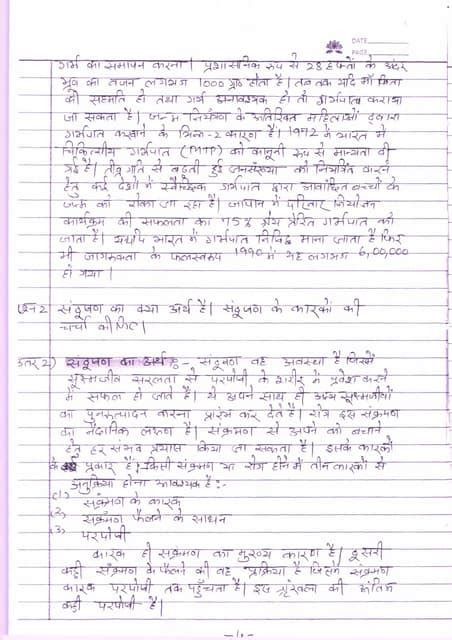 DATE
PAGE
गर्भ का समापन करना। प्रशासनिक रूप से 28 हफ्तों के अंदर
भ्रूण का वजन लगभग 1000 ग्राम होता है। तब तक यदि माँ पिता
की सहमति हो तथा गर्भ अनावश्यक हो तो गर्भपात कराया
जा सकता है। जन्म नियंत्रण के अतिरिक्त महिलाओं द्वारा
गर्भपात करवाने के भिन्न-2 कारण है। 1972 में भारत में
चिकित्सीय गर्भपात (MTP) को कानूनी रूप से मान्यता दी
गई है। तीव्र गति से बढ़ती हुई जनसंख्या को नियंत्रित करने
हेतु कई देशों में स्वैच्छिक गर्भपात द्वारा अवांछित बच्चों के
जन्म को रोका जा रहा है। जापान में परिवार नियोजन
कार्यक्रम की सफलता का 75% श्रेय प्रेरित गर्भपात को
जाता है। यद्यपि भारत में गर्भपात निषिद्ध माना जाता है फिर
भी जागरूकता के फलस्वरूप 1990 में यह लगभग 6,00,000
हो गया।
प्रश्न 2 संदूषण का क्या अर्थ है। संदूषण के कारकों की
चर्चा कीजिए।
उत्तर 2) संदूषण का अर्थ :- संदूषण वह अवस्था है जिसमें
सूक्ष्मजीव सरलता से परपोषी के शरीर में प्रवेश करने
में सफल हो जाते है। ये अपने साथ ही अन्य सूक्ष्मजीवों
का पुनरुत्पादन करना प्रारंभ कर देते है। रोग इस संक्रमण
का नैदानिक लक्षण है। संक्रमण से अपने को बचाने
हेतु हर संभव प्रयास किया जा सकता है। इसके कारकों
के प्रकार है; किसी संक्रमण या रोग होने में तीन कारकों से
अनुक्रिया होना आवश्यक है:-
(1) संक्रमण के कारक
(2) संक्रमण फैलने के साधन
(3) परपोषी
कारक ही संक्रमण का मुख्य कारण है। दूसरी
कड़ी संक्रमण के फैलने की वह प्रक्रिया है जिसमें संक्रमण
कारक परपोषी तक पहुँचता है। इस श्रृंखला की अंतिम
कड़ी परपोषी है।